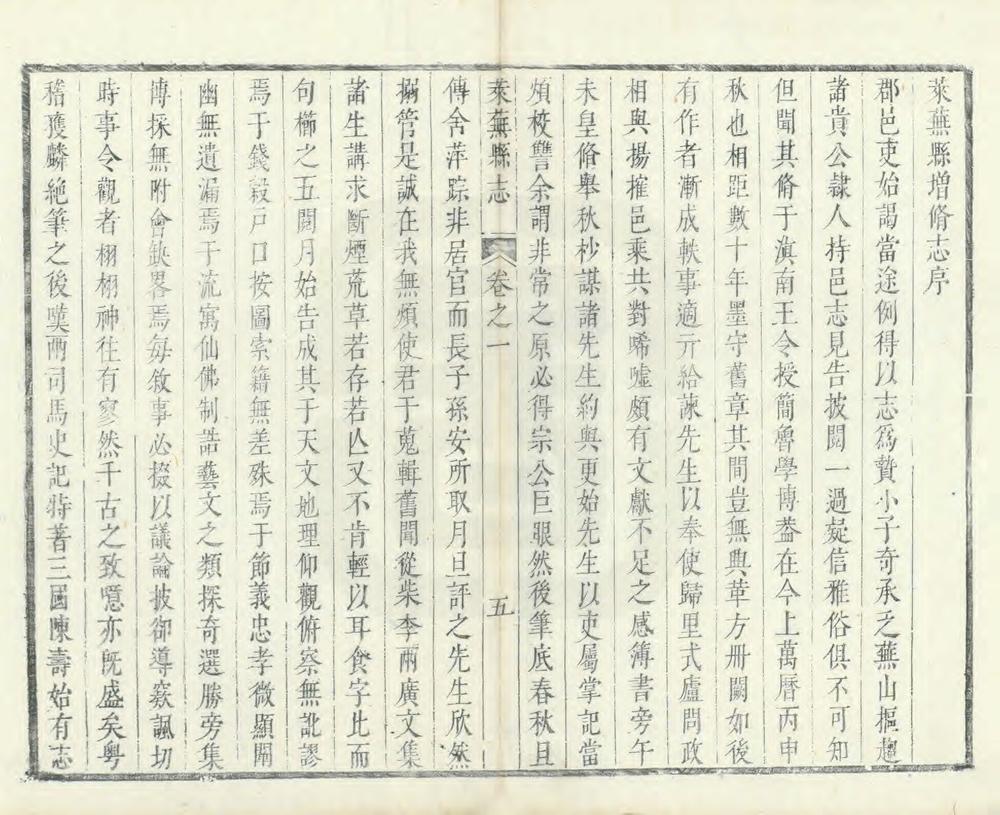 萊蕪縣增脩志序
郡邑吏始謁當途例得以志爲贄小子奇承乏蕪山樞趨
諸貴公隷人持邑志見告披閱一過疑信雅俗俱不可知
但聞其脩于滇南王令授簡魯學博葢在今上萬曆丙申
秋也相距數十年墨守舊章其間豈無興革方冊闕如後
有作者漸成軼事適亓給諫先生以奉使歸里式廬問政
相與揚搉邑乘共對唏噓頗有文獻不足之感簿書旁午
未皇脩舉秋杪謀諸先生約與更始先生以吏屬掌記當
煩校讐余謂非常之原必得宗公巨眼然後筆底春秋且
萊蕪縣志 卷之一 五
傳舍萍踪非居官而長子孫安所取月旦評之先生欣然
搦管是誠在我無煩使君于蒐輯舊聞從柴李兩廣文集
諸生講求斷煙荒草若存若亾又不肯輕以耳食字比而
句櫛之五閱月始告成其于天文地理仰觀俯察無訛謬
焉于錢穀戶口按圖索籍無差殊焉于節義忠孝微顯闡
幽無遺漏焉于流寓仙佛制誥藝文之類探奇選勝旁集
傳採無附會缺畧焉每敘事必掇以議論披卻導窾諷切
時事令觀者栩栩神往有寥然千古之致噫亦旣盛矣粤
稽獲麟絶筆之後嘆兩司馬史記特著三國陳壽始有志